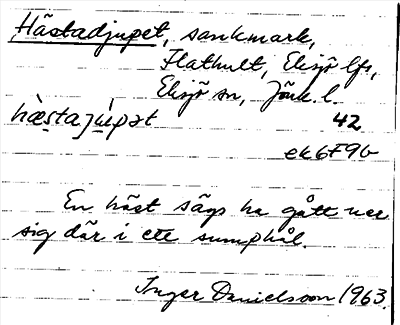 Hästadjupet, sankmark,
Flathult, Eksjö lfs,
Eksjö sn, Jönk. l.
hæ̀stajʉ̀pət 42
ek6F9b
En häst sägs ha gått ner
sig där i ett sumphål.
Inger Danielsson 1963.